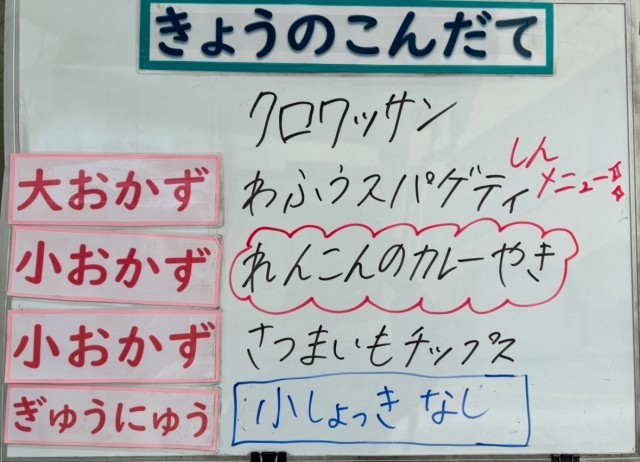 きょうのこんだて
クロワッサン
大おかず わふうスパゲティ しんメニュー!!
小おかず れんこんのカレーやき
小おかず さつまいもチップス
ぎゅうにゅう 小しょっき なし